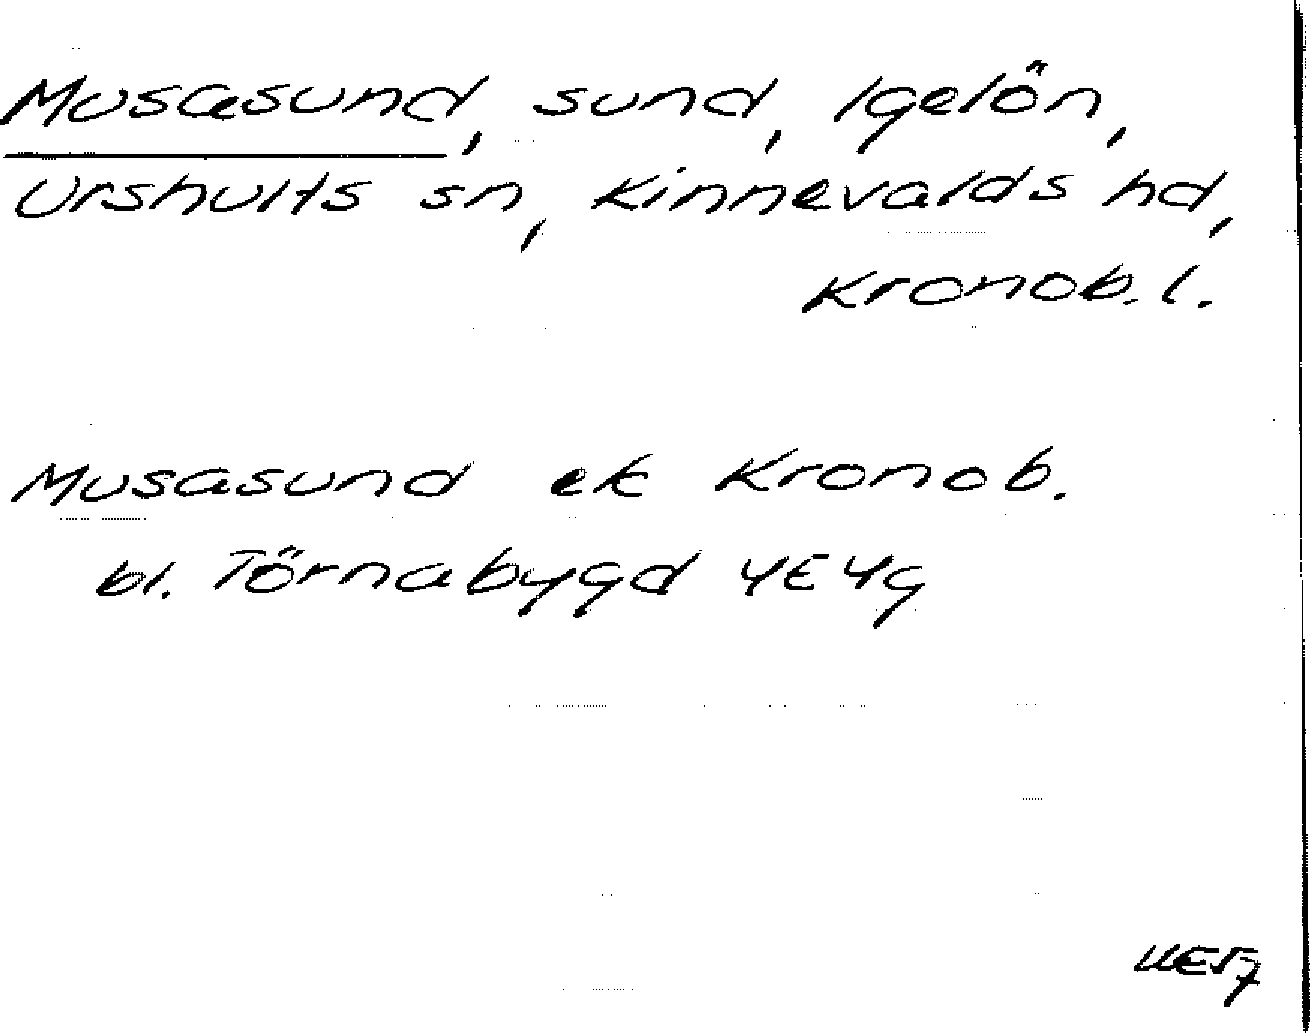 Musasund, sund, Igelön,
Urshults sn, Kinnevalds hd,
Kronob. l.
Musasund ek Kronob.
bl. Törnabygd 4E4g